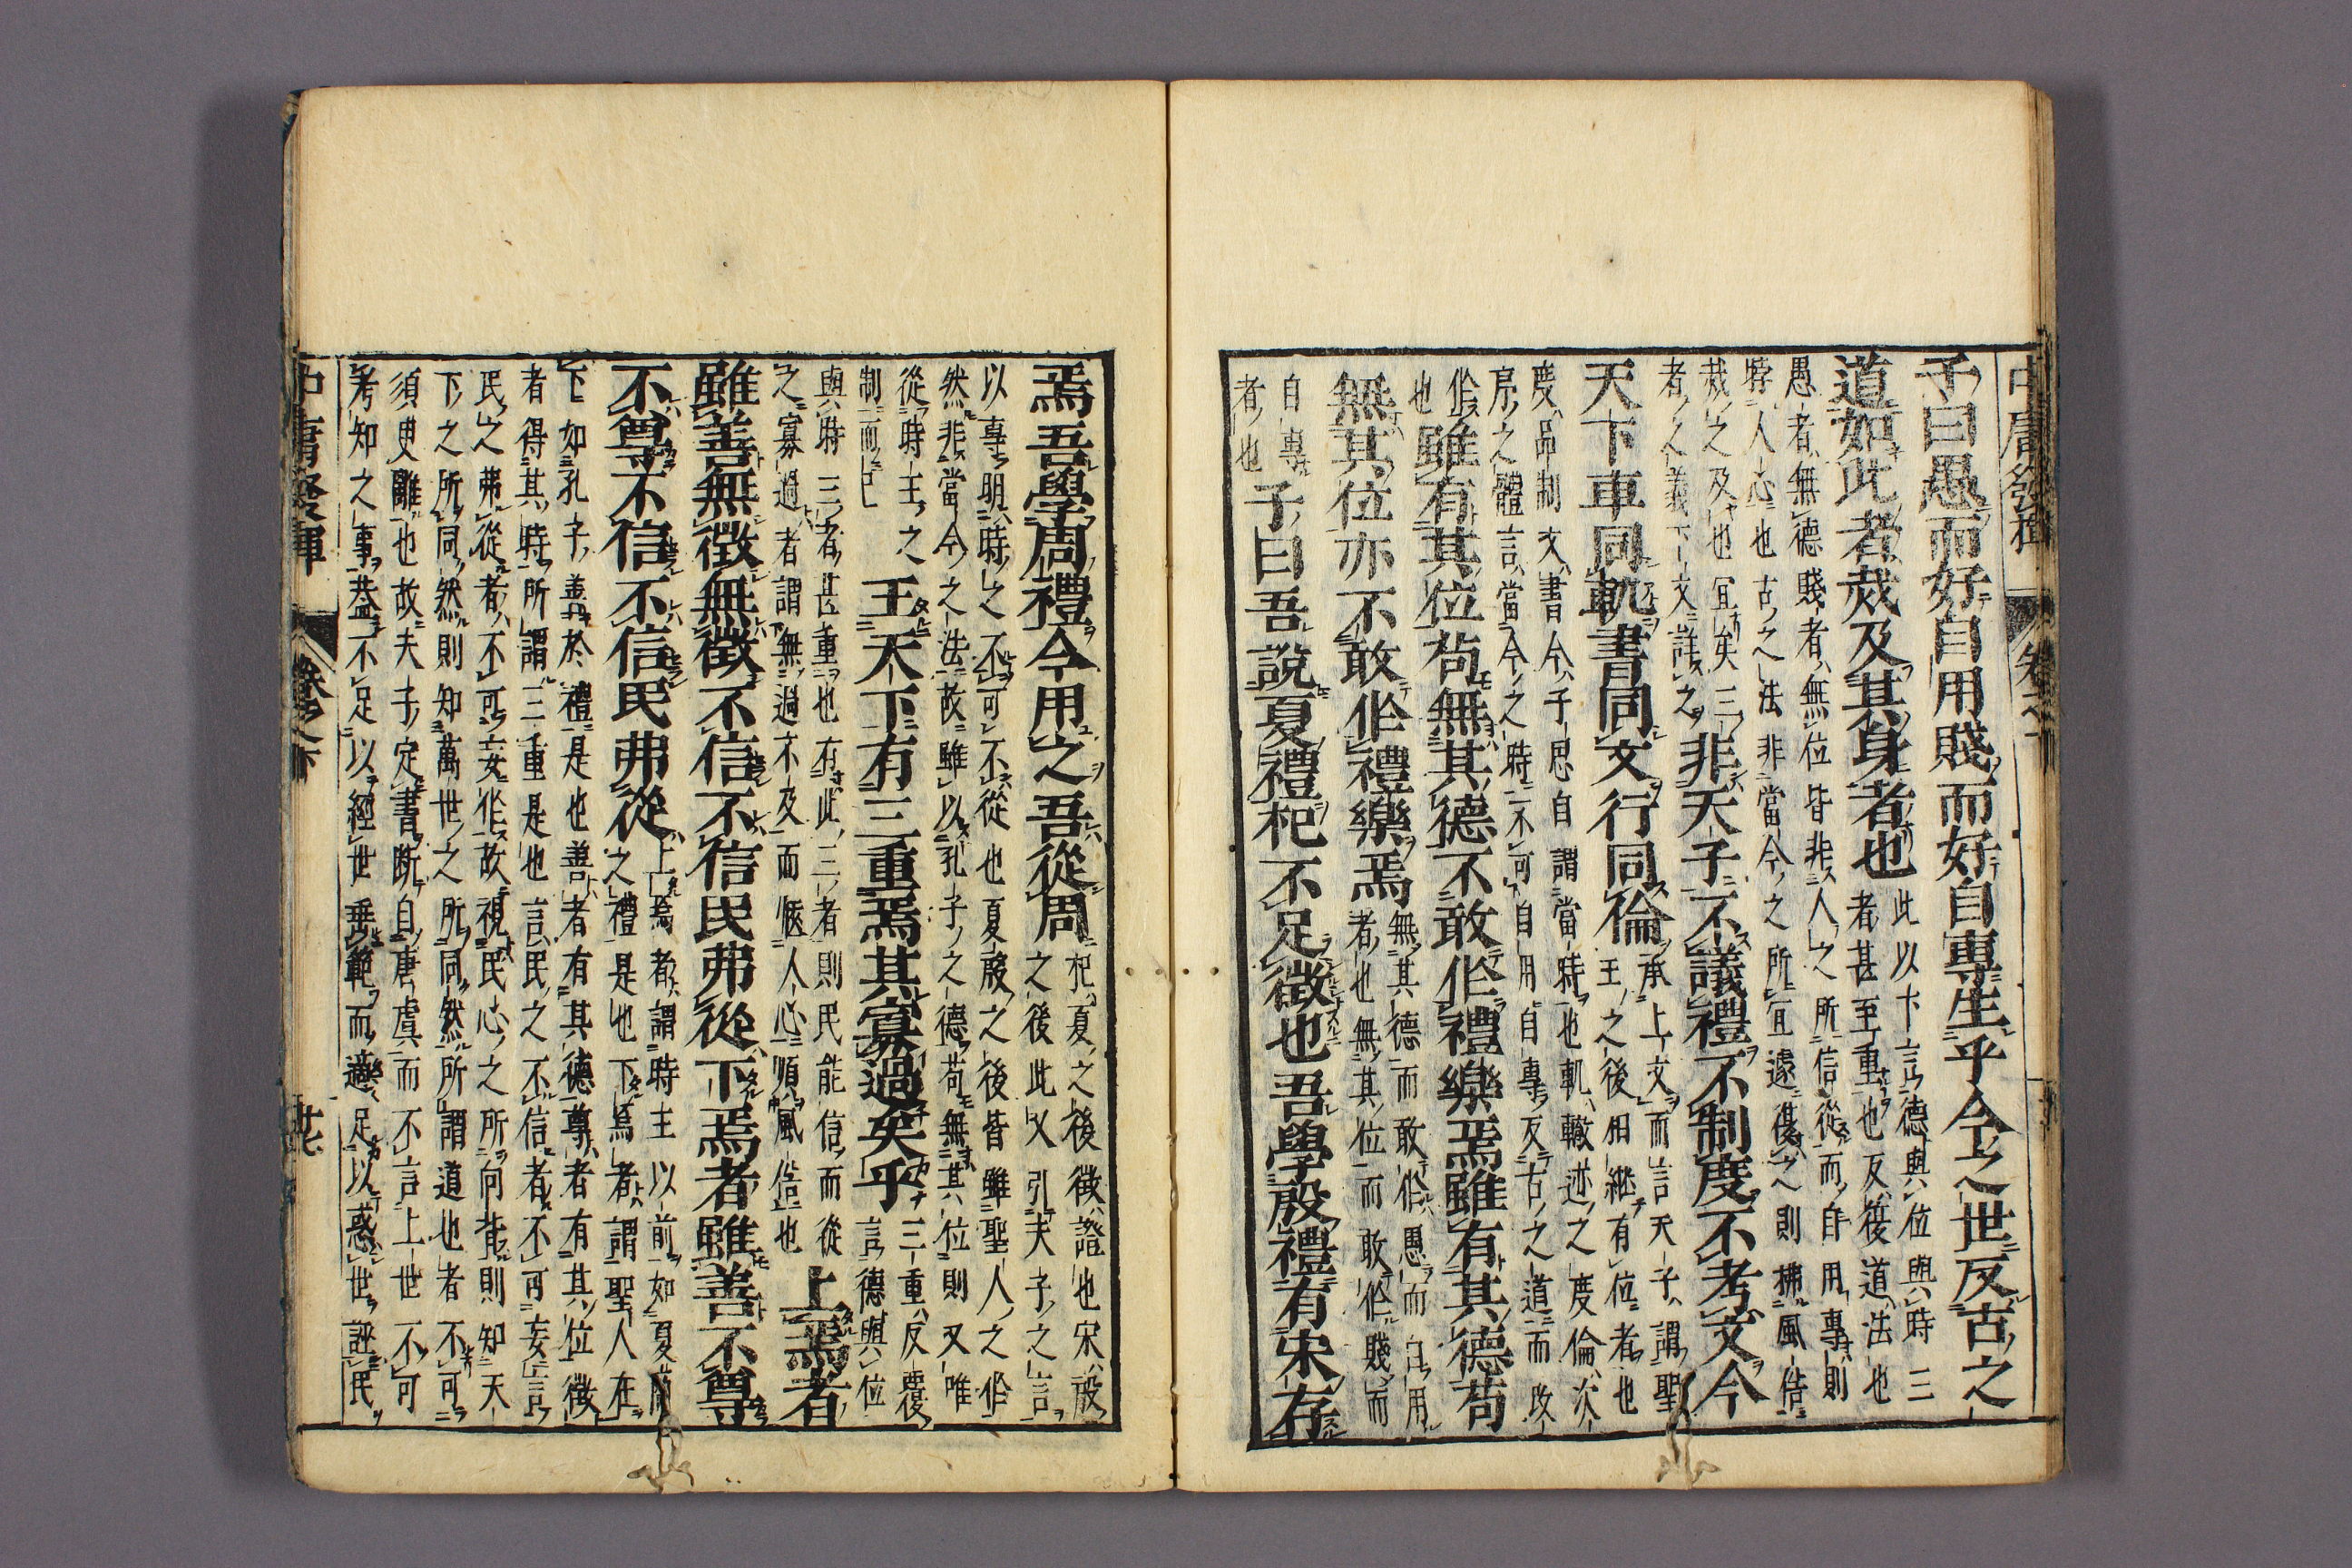 中庸發揮 卷之下
子曰愚而好自用賤而好自專生乎今之世反古之
道如此者烖及其身者也
此以下言德與位與時三
者甚至重也反復道法也
愚者無德賤者無位皆非人之所信從而自用專則
悖人心也古之法非當今之所宜遽復之則拂風俗
烖之及也宜矣三
者之義下文詳之
非天子不議禮不制度不考文今
天下車同軌書同文行同倫
承上文而言天子謂聖
王之後相継有位者也
度品制文書今子思自謂當時也軌轍迹之度倫次
序之體言當今之時不可自用自專反古之道而改
作
也
雖有其位苟無其德不敢作禮樂焉雖有其德苟
無其位亦不敢作禮樂焉
無其德而敢作愚而自用
者也無其位而敢作賤而
自專
者也
子曰吾說夏禮杞不足徵也吾學殷禮有宋存
焉吾學周禮今用之吾從周
杞夏之後徵證也宋殷
之後此又引夫子之言
以專明時之不可不從也夏殷之後皆雖聖人之作
然非當今之法故雖以孔子之德苟無其位則又唯
從時王之
制而已
王天下有三重焉其寡過矣乎
三重反覆
言德與位
與時三者甚重也有此三者則民能信而從
之寡過者謂無過不及而愜人心順風俗也
上焉者
雖善無徵無徵不信不信民弗從下焉者雖善不尊
不尊不信不信民弗從
上焉者謂時王以前如夏商
之禮是也下焉者謂聖人在
下如孔子善於禮是也善者有其德尊者有其位徵
者得其時所謂三重是也言民之不信者不可妄言
民之弗從者不可妄作故視民心之所向背則知天
下之所同然則知萬世之所同然所謂道也者不可
須臾離也故夫子定書断自唐虞而不言上世不可
考知之事蓋不足以經世垂範而適足以惑世誣民
中庸發揮 卷之下 廿七